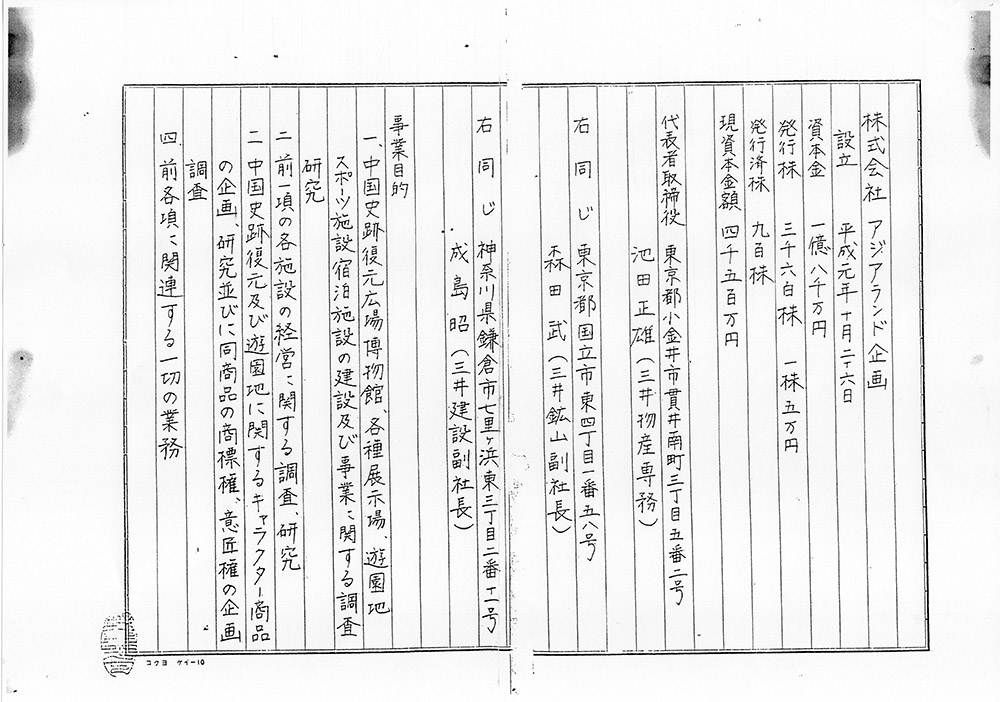 株式会社 アジアランド企画
設立 平成元年十月二十六日
資本金 一億八千万円
発行株 三千六百株 一株五万円
発行済株 九百株
現資本金額 四千五百万円
代表者取締役 東京都小金井市貫井南町三丁目五番二号
池田正雄（三井物産専務）
右同じ 東京都国立市東四丁目一番五八号
森田武（三井鉱山副社長）
右同じ 神奈川県鎌倉市七里ヶ浜東三丁目二番十二号
成島昭（三井建設副社長）
事業目的
一、中国史跡復元広場博物館、各種展示場、遊園地
スポーツ施設宿泊施設の建設及び事業に関する調査
研究
二 前一項の各施設の経営に関する調査、研究
二 中国史跡復元及び遊園地に関するキャラクター商品
の企画、研究並びに同商品の商標権、意匠権の企画
調査
四 前各項に関連する一切の業務
コクヨ ケイー10